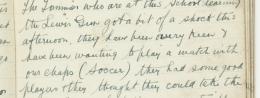 The Tommies who are at this School learning
the Lewis Gun got a bit of a shock this
afternoon, they have been very keen &
have been wanting to play a match with
our chaps (Soccer) they had some good
players other thought they could take the